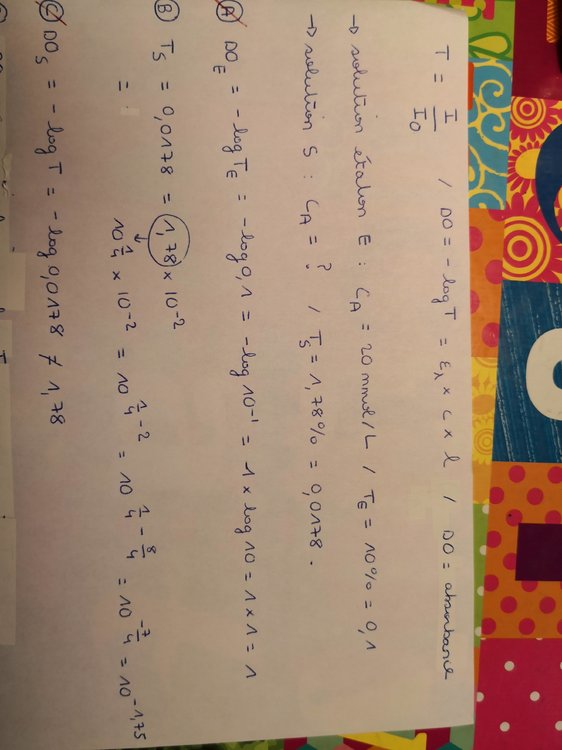 T = I/I0 / DO = - log T = ελ × C × l / DO = absorbance
→ solution étalon E : CA = 20 mmol/L / TE = 10% = 0,1
→ solution S : CA = ? / TS = 1,78% = 0,0178.
A DOE = - log TE = - log 0,1 = - log 10^-1 = 1 × log 10 = 1 × 1 = 1
B TS = 0,0178 = 1,78 × 10^-2
= 10^1/4 × 10^-2 = 10^1/4 - 2 = 10^1/4 - 8/4 = 10^-7/4 = 10^-1,75
C DOS = - log T = - log 0,0178 ≠ 1,78